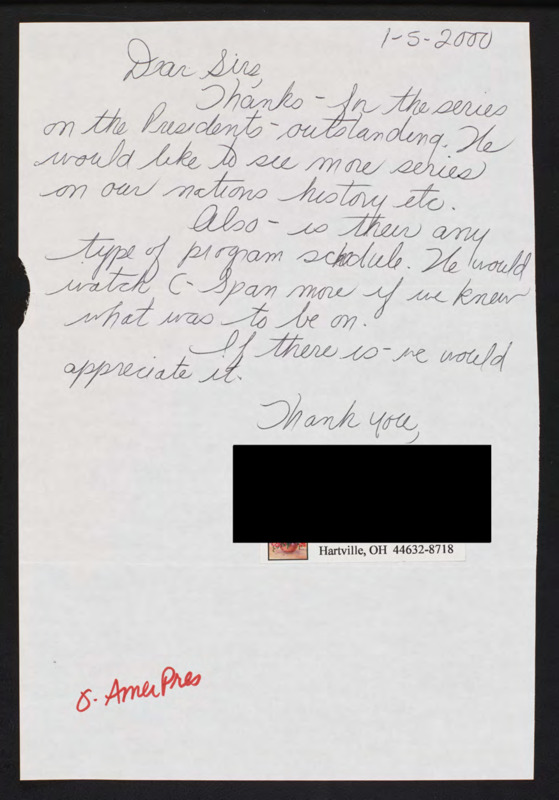 1-5-2000
Dear Sirs,
Thanks - for the series
on the Presidents - outstanding. We
would like to see more series
on our nations history etc.
Also - is their any
type of program schdule. We would
watch C-Span more if we knew
what was to be on.
If there is - we would
appreciate it.
Thank you,
Hartville, OH 44632-8718
g. AmerPres